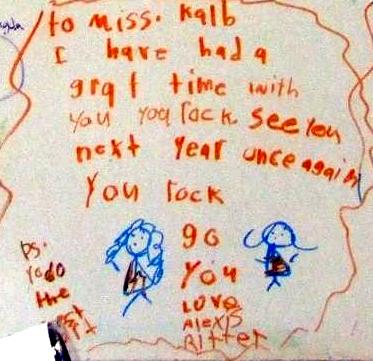 to miss. kalb
I have had a
grqt time with
you you rock see you
next year once again
you rock
go
you
Love
Alexis
Ritter
Ps.
yado
the